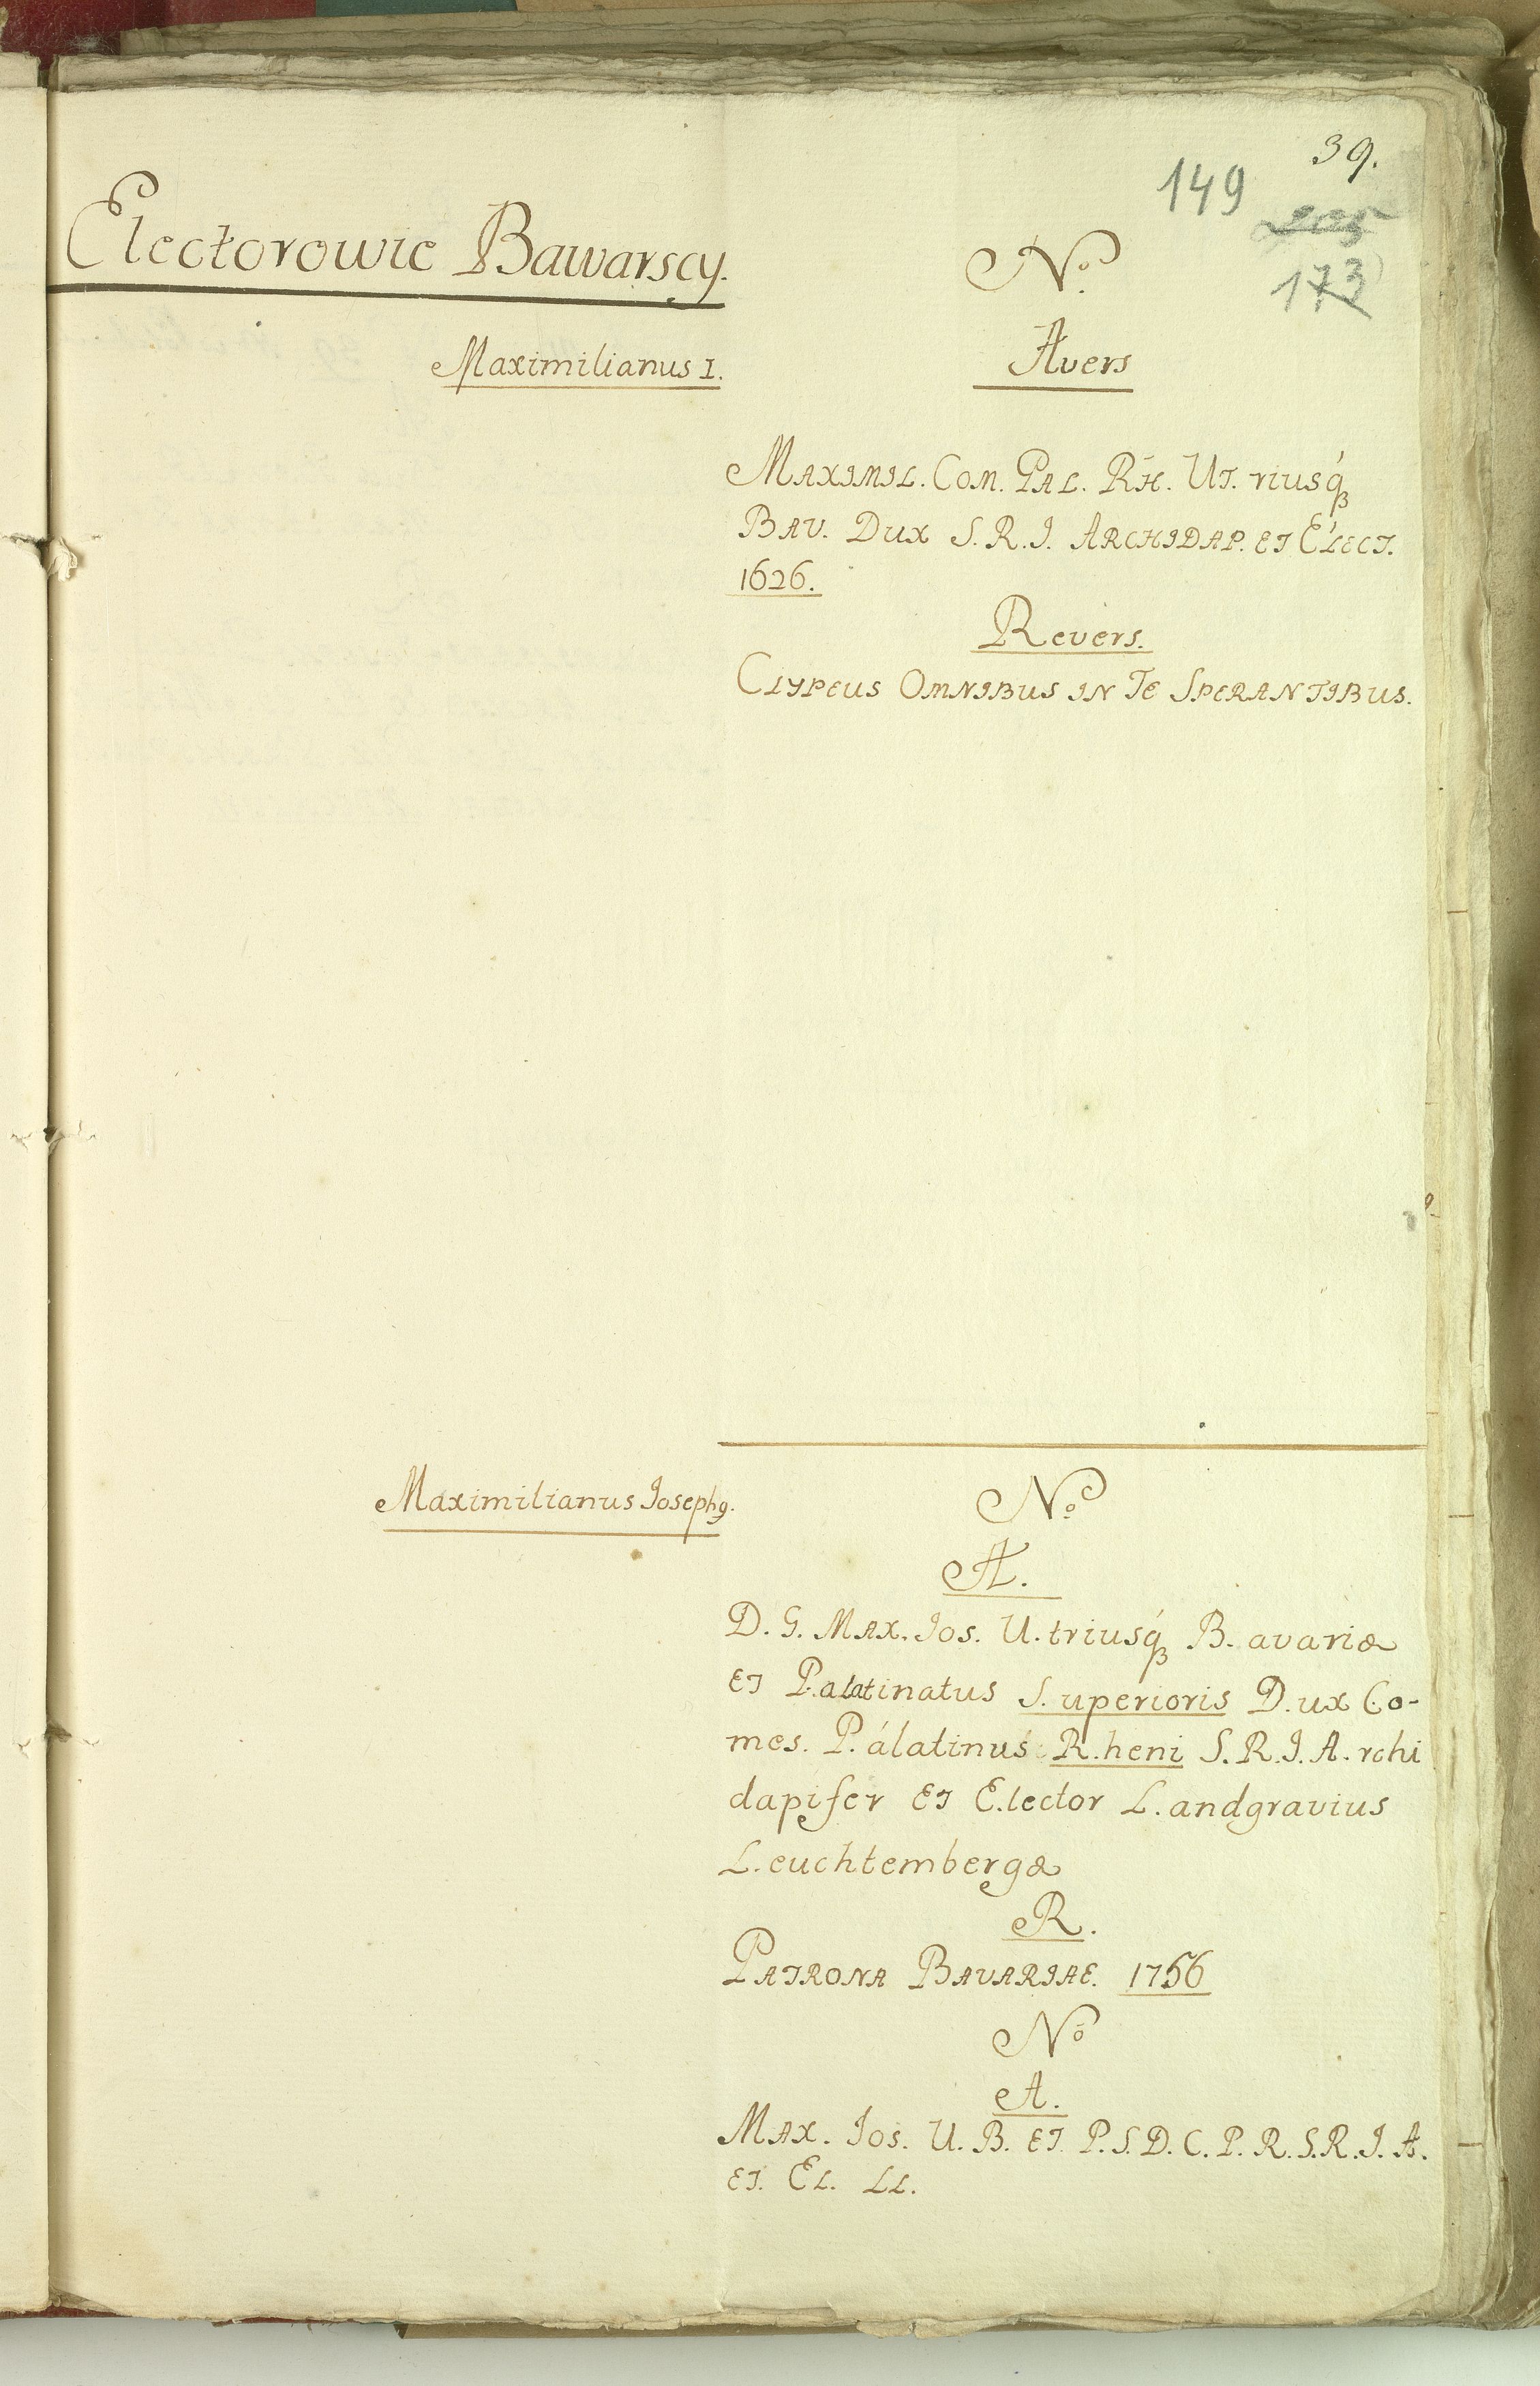 39.
149
173
Electorowie Bawarscy.
Nº
Maximilianus I.
Avers
MAXIMIL. COM. PAL. RH. UT. riusq́ꝫ
BAV. DUX S. R. I. ARCHIDAP. ET ELECT.
1626.
Revers.
CLYPEUS OMNIBUS IN TE SPERANTIBUS.
Maximilianus Josephꝰ.
Nº
A.
D. G. MAX. Jos. U. triusq́ꝫ B. avariæ
ET P. alatinatus S. uperioris D. ux Co-
mes. P. álatinus R. heni S. R. I. A. rchi
dapifer ET E. lector L. andgravius
L. euchtembergæ
R.
PATRONA BAVARIAE. 1756
Nº
A.
MAX. Jos. U. B. ET. P. S. D. C. P. R. S. R. I. A.
ET. EL. LL.